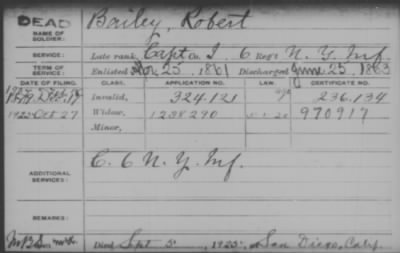 DEAD
NAME OF SOLDIER: Bailey, Robert
SERVICE: Late rank, Capt Co. I, 6 Reg't N. Y. Inf
TERM OF SERVICE: Enlisted 25, 1861 Discharged June 25, 1863
DATE OF FILING. CLASS. APPLICATION NO. LAW. CERTIFICATE NO.
Invalid, 324.121 236.134
1925 Oct 27 Widow, 1238290 970917
Minor,
ADDITIONAL SERVICES: C. 6 N. Y. Inf.
REMARKS:
Died Sept 5, 1925, at San Diego, Calif.